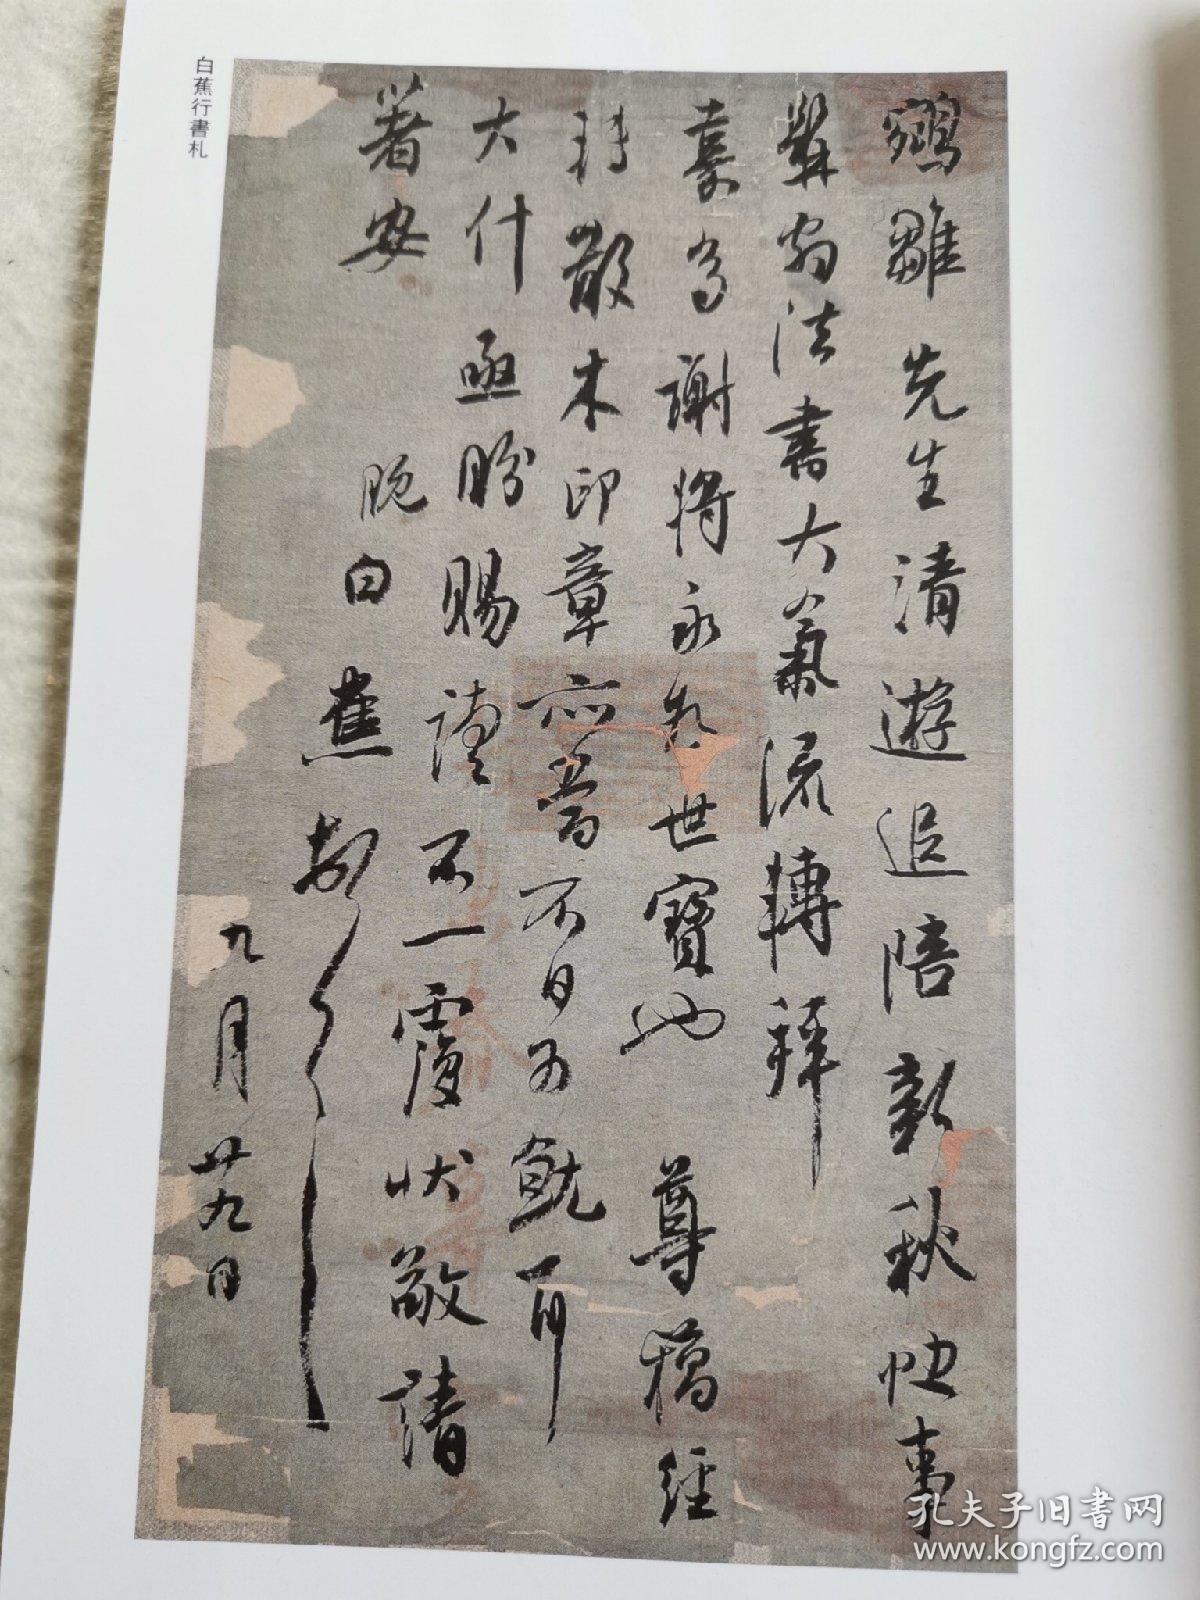 鵷雛先生清遊追陪新秋快事
弇翁法書大氣流轉拜
嘉为謝將永为世寶也 尊稿經
轉散木印章亦蒼不日可觥耳
大什亟盼賜讀不一覆状敬請
著安
晚白蕉頓首
九月廿九日
白蕉行書札
孔夫子旧书网
www.kongfz.com